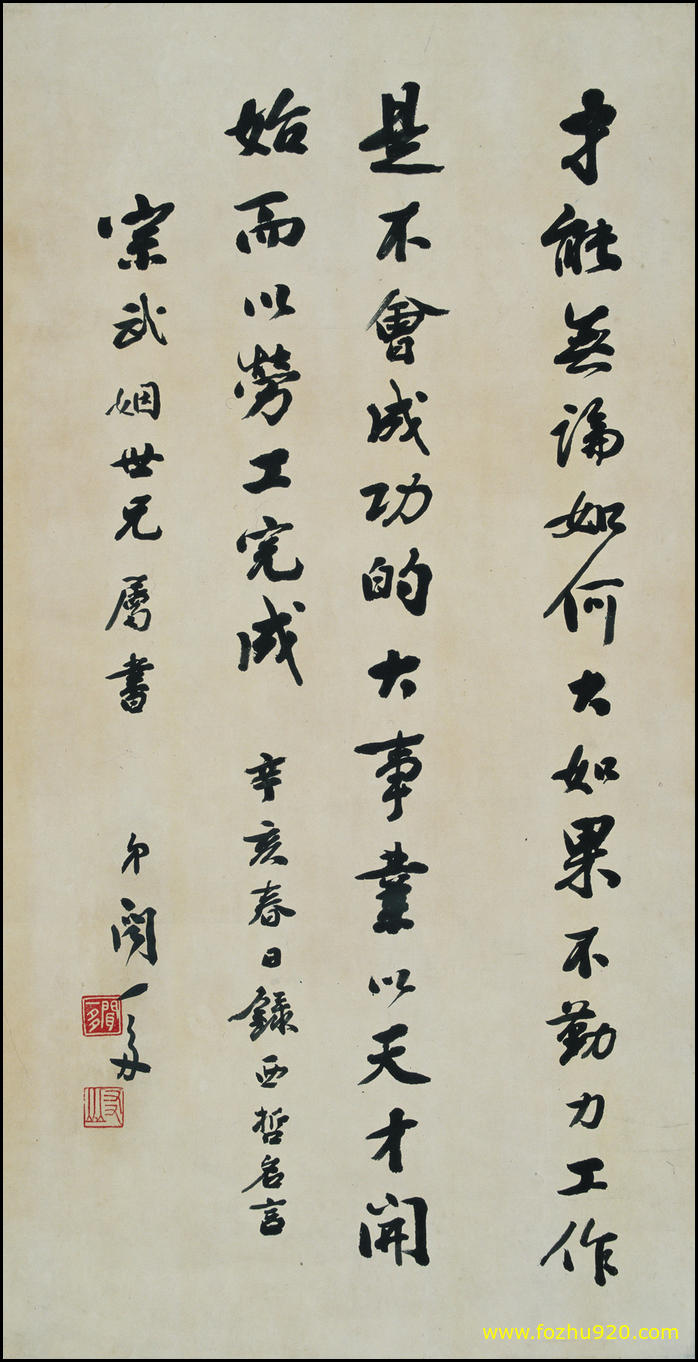 才能無論如何大如果不勤力工作
是不會成功的大事業以天才開
始而以勞工完成 辛亥春日錄西哲名言
宗武姻世兄屬書 弟閒一多
www.fozhu920.com